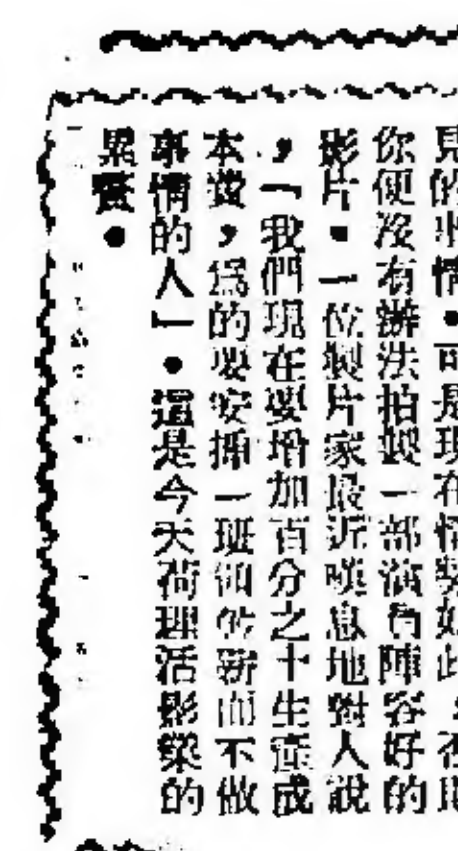 見的事情・可是現在情勢如此，否則
你便沒有辦法拍製一部演員陣容好的
影片・一位製片家最近嘆息地對人說
，「我們現在要增加百分之十生產成
本費，爲的要安插一班支薪而不做
事情的人」・這是今天荷理活影業的
累贅・